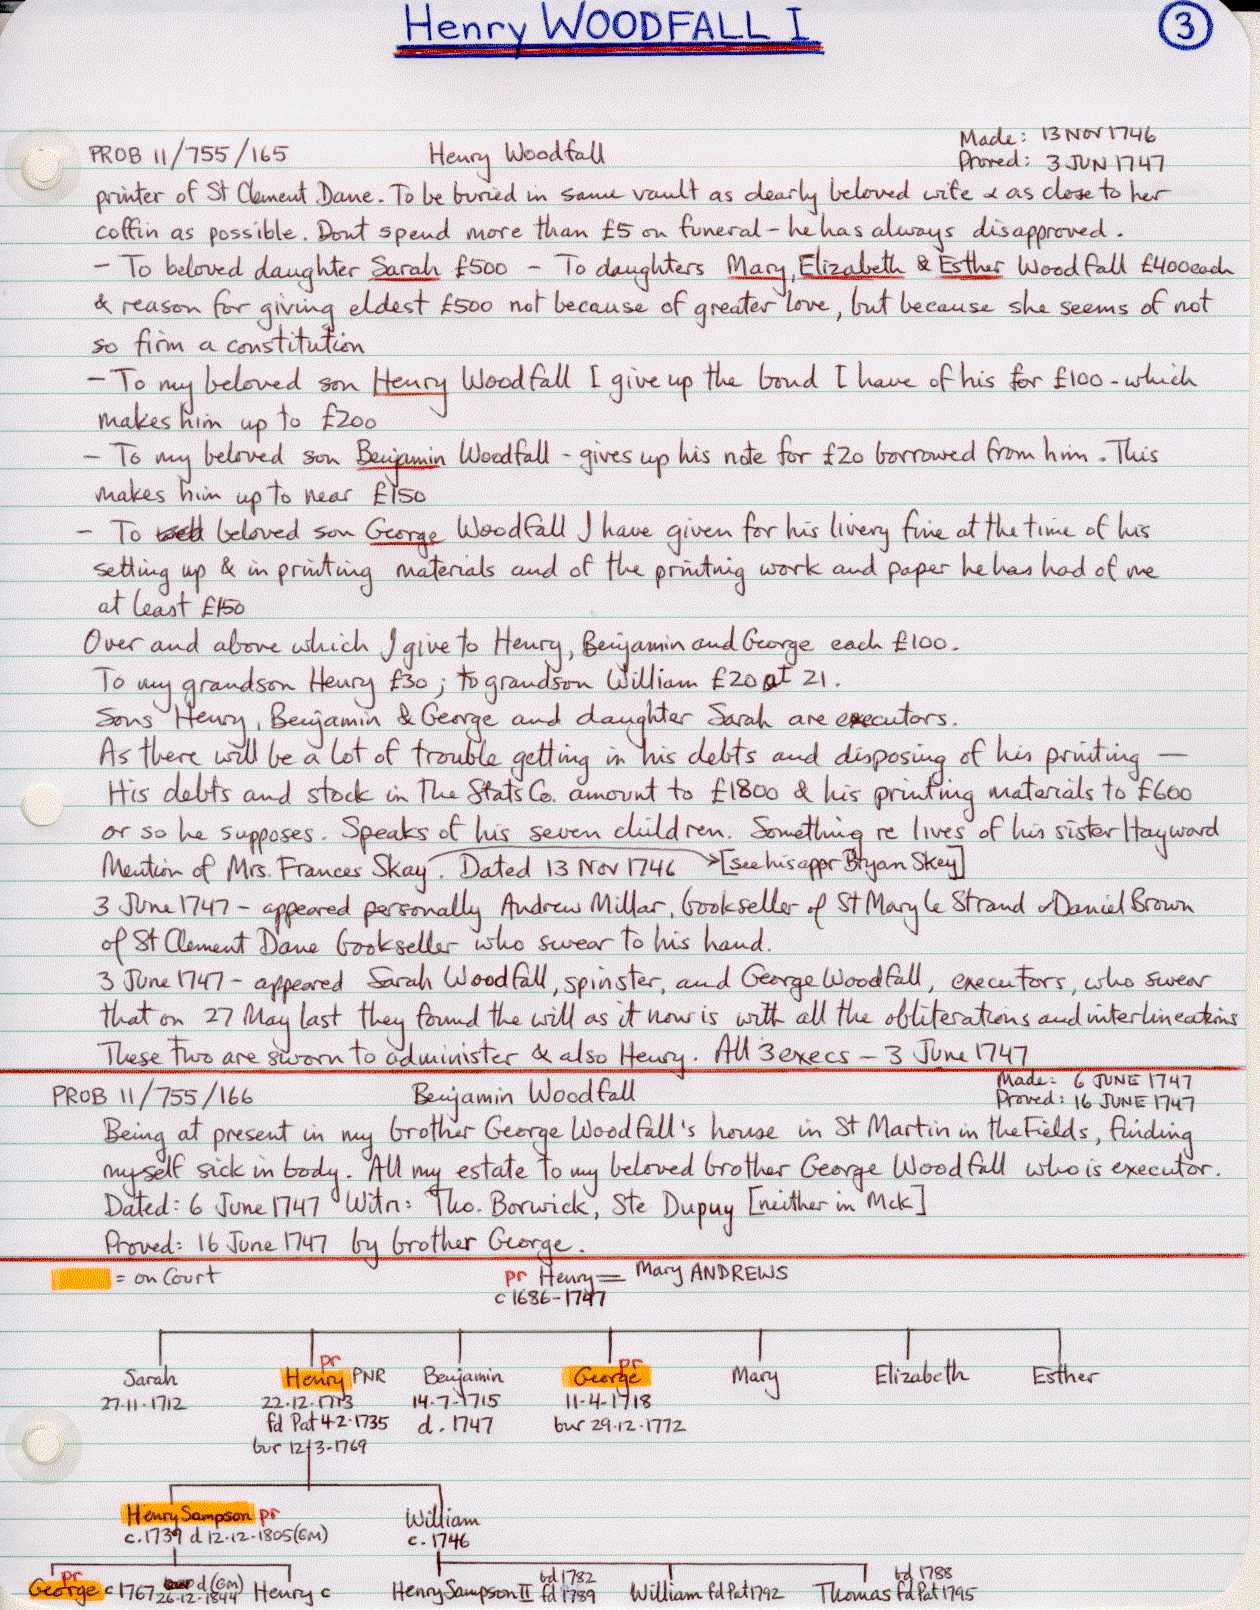 Henry WOODFALL I
3
PROB 11/755/165 Henry Woodfall Made: 13 NOV 1746
Proved: 3 JUN 1747
printer of St Clement Dane. To be buried in same vault as dearly beloved wife & as close to her
coffin as possible. Dont spend more than £5 on funeral - he has always disapproved.
- To beloved daughter Sarah £500 - To daughters Mary, Elizabeth & Esther Woodfall £400 each
& reason for giving eldest £500 not because of greater love, but because she seems of not
so firm a constitution
- To my beloved son Henry Woodfall I give up the bond I have of his for £100 - which
makes him up to £200
- To my beloved son Benjamin Woodfall - gives up his note for £20 borrowed from him. This
makes him up to near £150
- To beloved son George Woodfall I have given for his livery fine at the time of his
setting up & in printing materials and of the printing work and paper he has had of me
at least £150
Over and above which I give to Henry, Benjamin and George each £100.
To my grandson Henry £30; to grandson William £20 at 21.
Sons Henry, Benjamin & George and daughter Sarah are executors.
As there will be a lot of trouble getting in his debts and disposing of his printing —
His debts and stock in The Stats Co. amount to £1800 & his printing materials to £600
or so he supposes. Speaks of his seven children. Something re lives of his sister Hayward
Mention of Mrs. Frances Skay. Dated 13 Nov 1746 → [see his appr Bryan Skey]
3 June 1747 - appeared personally Andrew Millar, bookseller of St Mary le Strand & Daniel Brown
of St Clement Dane bookseller who swear to his hand.
3 June 1747 - appeared Sarah Woodfall, spinster, and George Woodfall, executors, who swear
that on 27 May last they found the will as it now is with all the obliterations and interlineations
These two are sworn to administer & also Henry. All 3 execs - 3 June 1747
PROB 11/755/166 Benjamin Woodfall Made: 6 JUNE 1747
Proved: 16 JUNE 1747
Being at present in my brother George Woodfall's house in St Martin in the Fields, finding
myself sick in body. All my estate to my beloved brother George Woodfall who is executor.
Dated: 6 June 1747 Witn: Tho. Borwick, Ste Dupuy [neither in McK]
Proved: 16 June 1747 by brother George.
= on Court
pr Henry = Mary ANDREWS
c 1686-1747
pr pr
Sarah Henry PNR Benjamin George Mary Elizabeth Esther
27.11.1712 22.12.1713 14.7.1715 11.4.1718
fd Pat 4.2.1735 d. 1747 bur 29.12.1772
bur 12.3.1769
Henry Sampson pr William
c.1739 d 12.12.1805 (GM) c. 1746
pr bd 1782 bd 1788
George c 1767 d (GM) Henry c Henry Sampson II fd 1789 William fd Pat 1792 Thomas fd Pat 1795
26.12.1844